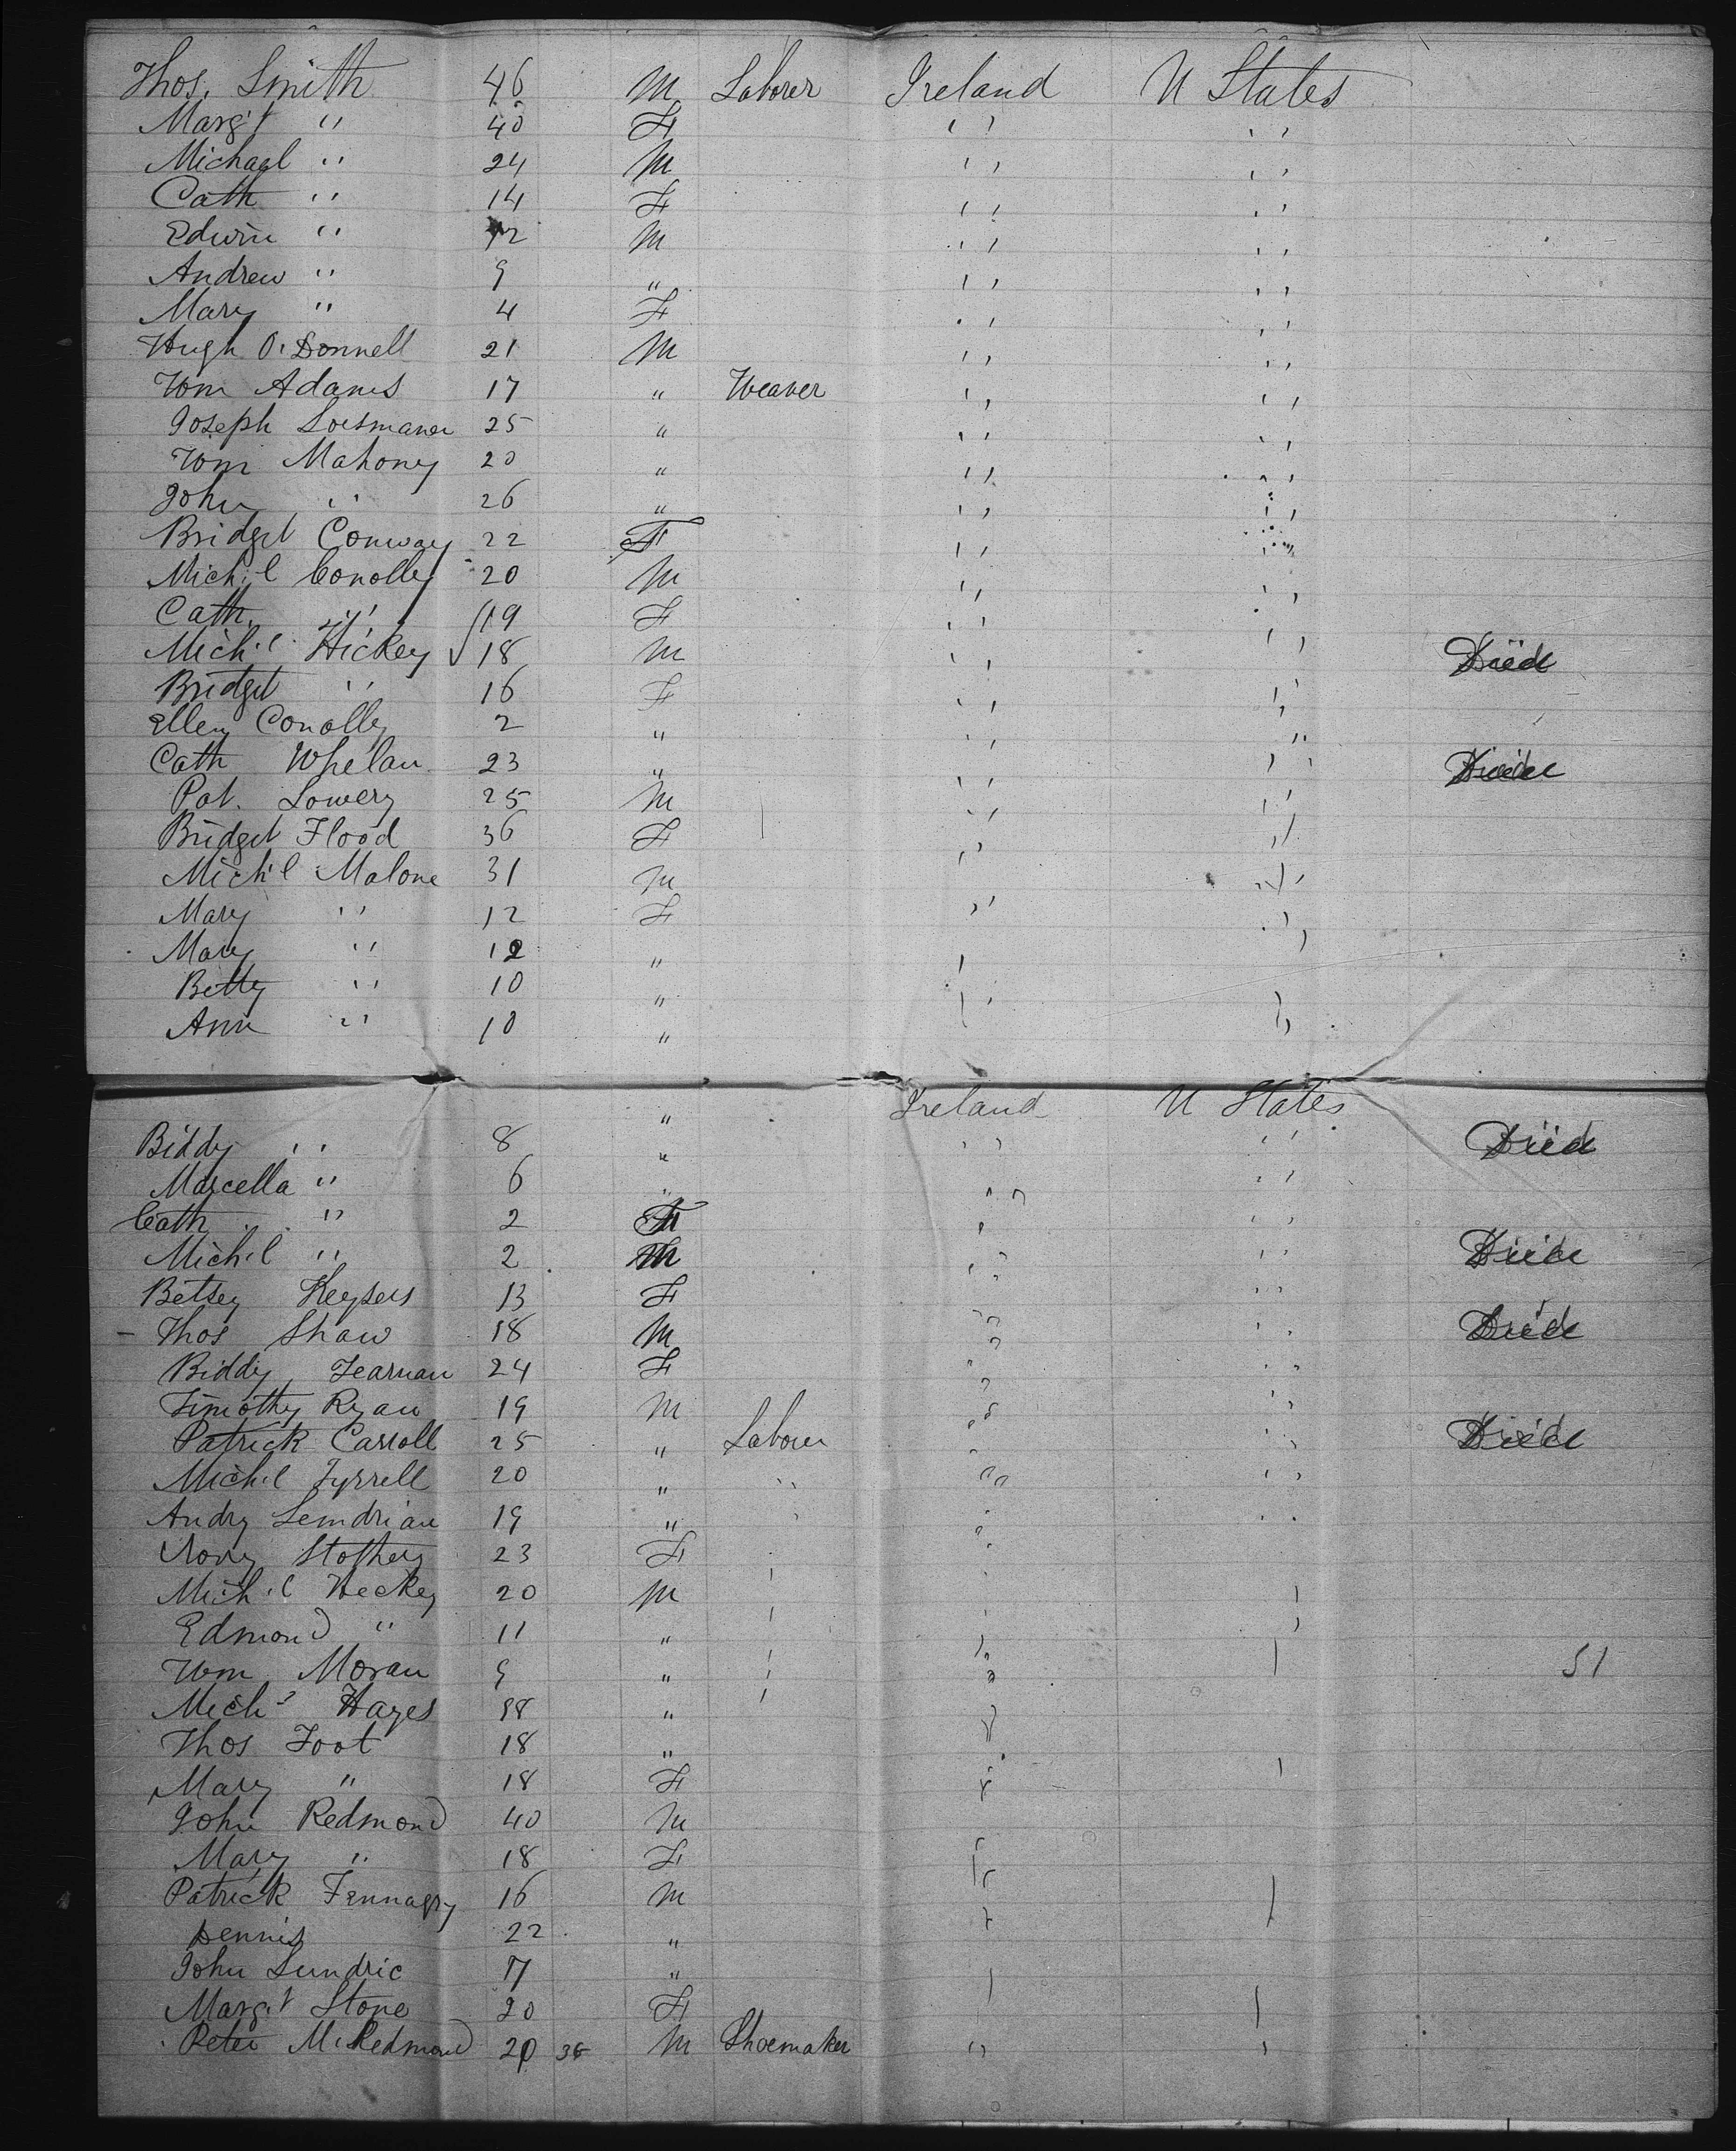 Thos. Smith 46 M Laborer Ireland U States
Marg't " 40 F " "
Michael " 24 M " "
Cath " 14 F " "
Edwin " 12 M " "
Andrew " 9 " " "
Mary " 4 F " "
Hugh O'Donnell 21 M " "
Wm Adams 17 " Weaver " "
Joseph 25 " " "
Wm Mahoney 20 " " "
John " 26 " " "
Bridget Conway 22 F " "
Mich'l Conolley 20 M " "
Cath. " 19 F " "
Mich'l Hickey 18 M " " Died
Bridget " 16 F " "
Ellen Conolley 2 " " "
Cath Whelan 23 " " " Died
Pat. Lowery 25 M " "
Bridget Flood 36 F " "
Mich'l Malone 31 M " "
Mary " 12 F " "
Mary " 12 " " "
Betty " 10 " " "
Ann " 10 " " "
" Ireland U States
Biddy " 8 " " " Died
Marcella " 6 " " "
Cath " 2 F " "
Mich'l " 2 M " " Died
Betsey Keysers 13 F " "
Thos Shaw 18 M " " Died
Biddy Fearnan 24 F " "
Timothy Ryan 19 M " "
Patrick Carroll 25 " Laborer " " Died
Mich'l Tyrrell 20 " " " "
Andry Lemdrian 19 " " " "
Stothery 23 F
Mich'l Heckey 20 M
Edmond " 11 "
Wm Moran 9 " 51
Mich'l Hayes 18 "
Thos Foot 18 "
Mary " 18 F
John Redmond 40 M
Mary " 18 F
Patrick 16 M
Dennis 22 "
John Lundric 17 "
Marg't Stone 20 F
Peter McRedmond 20 36 M Shoemaker " "